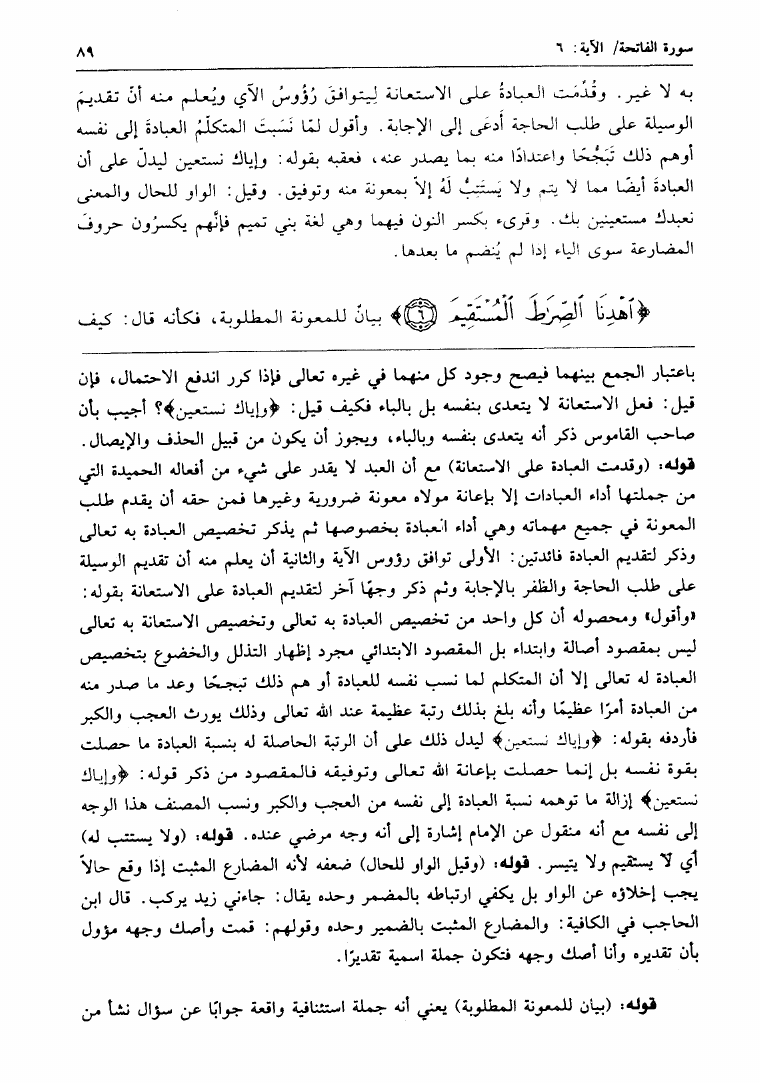 سورة الفاتحة/ الآية: ٦ ٨٩
به لا غير. وقُدِّمَت العبادةُ على الاستعانة لِيتوافقَ رُؤُوسُ الآي ويُعلم منه أنّ تقديمَ
الوسيلة على طلب الحاجة أَدعَى إلى الإجابة. وأقول لمّا نَسَبتَ المتكلّمُ العبادةَ إلى نفسه
أوهم ذلك تَبَجُّحًا واعتدادًا منه بما يصدر عنه، فعقبه بقوله: وإياك نستعين ليدلّ على أن
العبادةَ أيضًا مما لا يتم ولا يَستَتِبُّ لَهُ إلاّ بمعونة منه وتوفيق. وقيل: الواو للحال والمعنى
نعبدك مستعينين بك. وقرىء بكسر النون فيهما وهي لغة بني تميم فإنّهم يكسرُون حروفَ
المضارعة سوى الياء إذا لم يُنضم ما بعدها.
﴿ٱهْدِنَا ٱلصِّرَٰطَ ٱلْمُسْتَقِيمَ ﴿٦﴾﴾ بيانٌ للمعونة المطلوبة، فكأنه قال: كيف
باعتبار الجمع بينهما فيصح وجود كل منهما في غيره تعالى فإذا كرر اندفع الاحتمال، فإن
قيل: فعل الاستعانة لا يتعدى بنفسه بل بالباء فكيف قيل: ﴿وإياك نستعين﴾؟ أجيب بأن
صاحب القاموس ذكر أنه يتعدى بنفسه وبالباء، ويجوز أن يكون من قبيل الحذف والإيصال.
قوله: (وقدمت العبادة على الاستعانة) مع أن العبد لا يقدر على شيء من أفعاله الحميدة التي
من جملتها أداء العبادات إلا بإعانة مولاه معونة ضرورية وغيرها فمن حقه أن يقدم طلب
المعونة في جميع مهماته وهي أداء العبادة بخصوصها ثم يذكر تخصيص العبادة به تعالى
وذكر لتقديم العبادة فائدتين: الأولى توافق رؤوس الآية والثانية أن يعلم منه أن تقديم الوسيلة
على طلب الحاجة والظفر بالإجابة وثم ذكر وجهًا آخر لتقديم العبادة على الاستعانة بقوله:
«وأقول» ومحصوله أن كل واحد من تخصيص العبادة به تعالى وتخصيص الاستعانة به تعالى
ليس بمقصود أصالة وابتداء بل المقصود الابتدائي مجرد إظهار التذلل والخضوع بتخصيص
العبادة له تعالى إلا أن المتكلم لما نسب نفسه للعبادة أو هم ذلك تبجحًا وعد ما صدر منه
من العبادة أمرًا عظيمًا وأنه بلغ بذلك رتبة عظيمة عند الله تعالى وذلك يورث العجب والكبر
فأردفه بقوله: ﴿وإياك نستعين﴾ ليدل ذلك على أن الرتبة الحاصلة له بنسبة العبادة ما حصلت
بقوة نفسه بل إنما حصلت بإعانة الله تعالى وتوفيقه فالمقصود من ذكر قوله: ﴿وإياك
نستعين﴾ إزالة ما توهمه نسبة العبادة إلى نفسه من العجب والكبر ونسب المصنف هذا الوجه
إلى نفسه مع أنه منقول عن الإمام إشارة إلى أنه وجه مرضي عنده. قوله: (ولا يستتب له)
أي لا يستقيم ولا يتيسر. قوله: (وقيل الواو للحال) ضعفه لأنه المضارع المثبت إذا وقع حالاً
يجب إخلاؤه عن الواو بل يكفي ارتباطه بالمضمر وحده يقال: جاءني زيد يركب. قال ابن
الحاجب في الكافية: والمضارع المثبت بالضمير وحده وقولهم: قمت وأصك وجهه مؤول
بأن تقديره وأنا أصك وجهه فتكون جملة اسمية تقديرًا.
قوله: (بيان للمعونة المطلوبة) يعني أنه جملة استئنافية واقعة جوابًا عن سؤال نشأ من